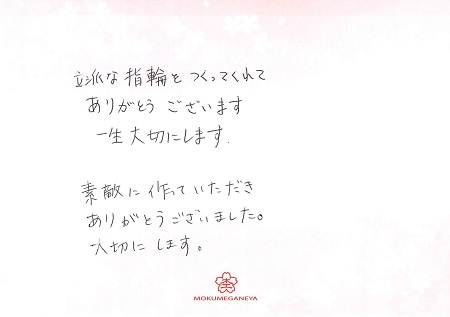 立派な指輪をつくってくれて
ありがとうございます
一生大切にします.
素敵に作っていただき
ありがとうございました。
大切にします。
MOKUMEGANEYA